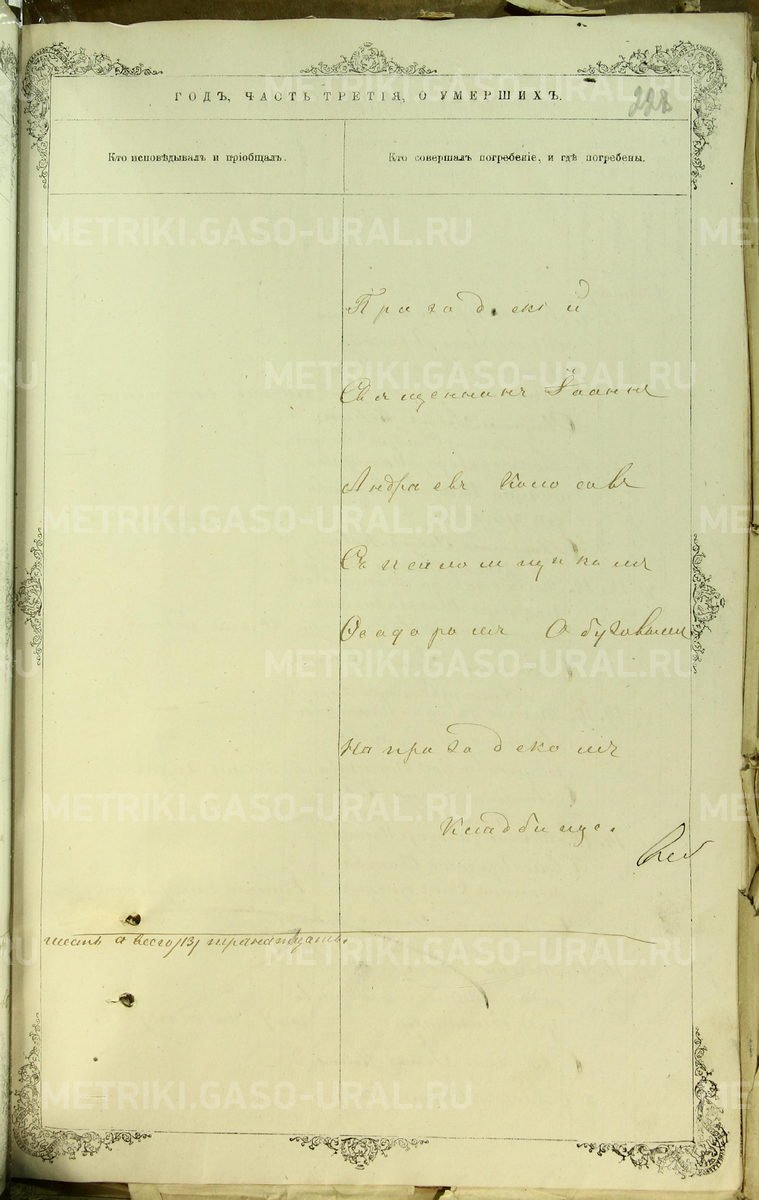 ГОДЪ, ЧАСТЬ ТРЕТІЯ, О УМЕРШИХЪ.
228
Кто исповѣдывалъ и пріобщалъ.
Кто совершалъ погребеніе, и гдѣ погребены.
METRIKI.GASO-URAL.RU
Священникъ Іоаннъ
Андреевъ
Съ псаломщикомъ
Ѳеодоромъ Обуховымъ
На
Кладбище.
шесть а всего /13/ тринатцать.